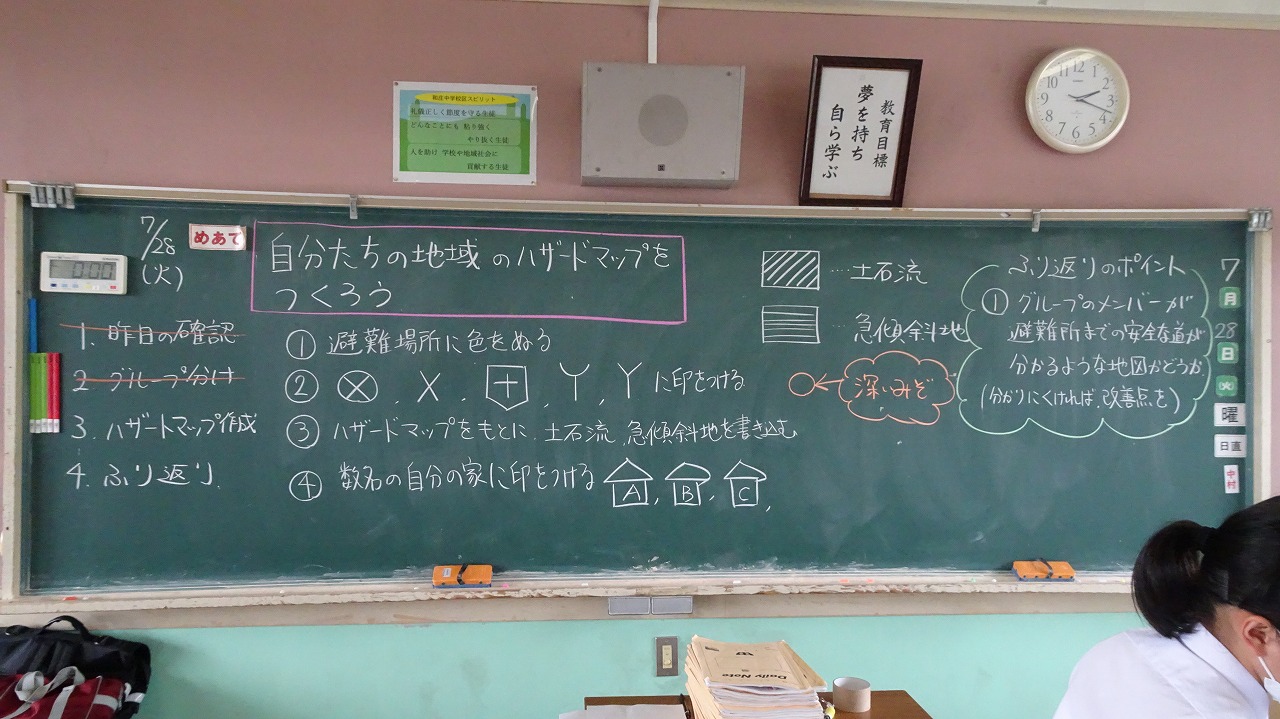 和庄中学校区スピリット
礼儀正しく節度を守る生徒
どんなことにも 粘り強く
やり抜く生徒
人を助け 学校や地域社会に
貢献する生徒
教育目標
夢を持ち
自ら学ぶ
12
1
2
3
4
5
6
7
8
9
10
11
7/28
(火)
0:00
めあて
自分たちの地域のハザードマップを
つくろう
1. 昨日の確認
2 グループ分け
3. ハザードマップ作成
4. ふり返り.
① 避難場所に色をぬる
② ⊗, X, 十, Y, Y に印をつける
③ ハザードマップをもとに、土石流、急傾斜地を書き込む
④ 数名の自分の家に印をつける A, B, C,
…土石流
急傾斜地
深いみぞ
ふり返りのポイント
① グループのメンバーが
避難所までの安全な道が
分かるような地図かどうか
(分かりにくければ、改善点を)
7
月
28
日
火
曜
日直
中村
Daily Note